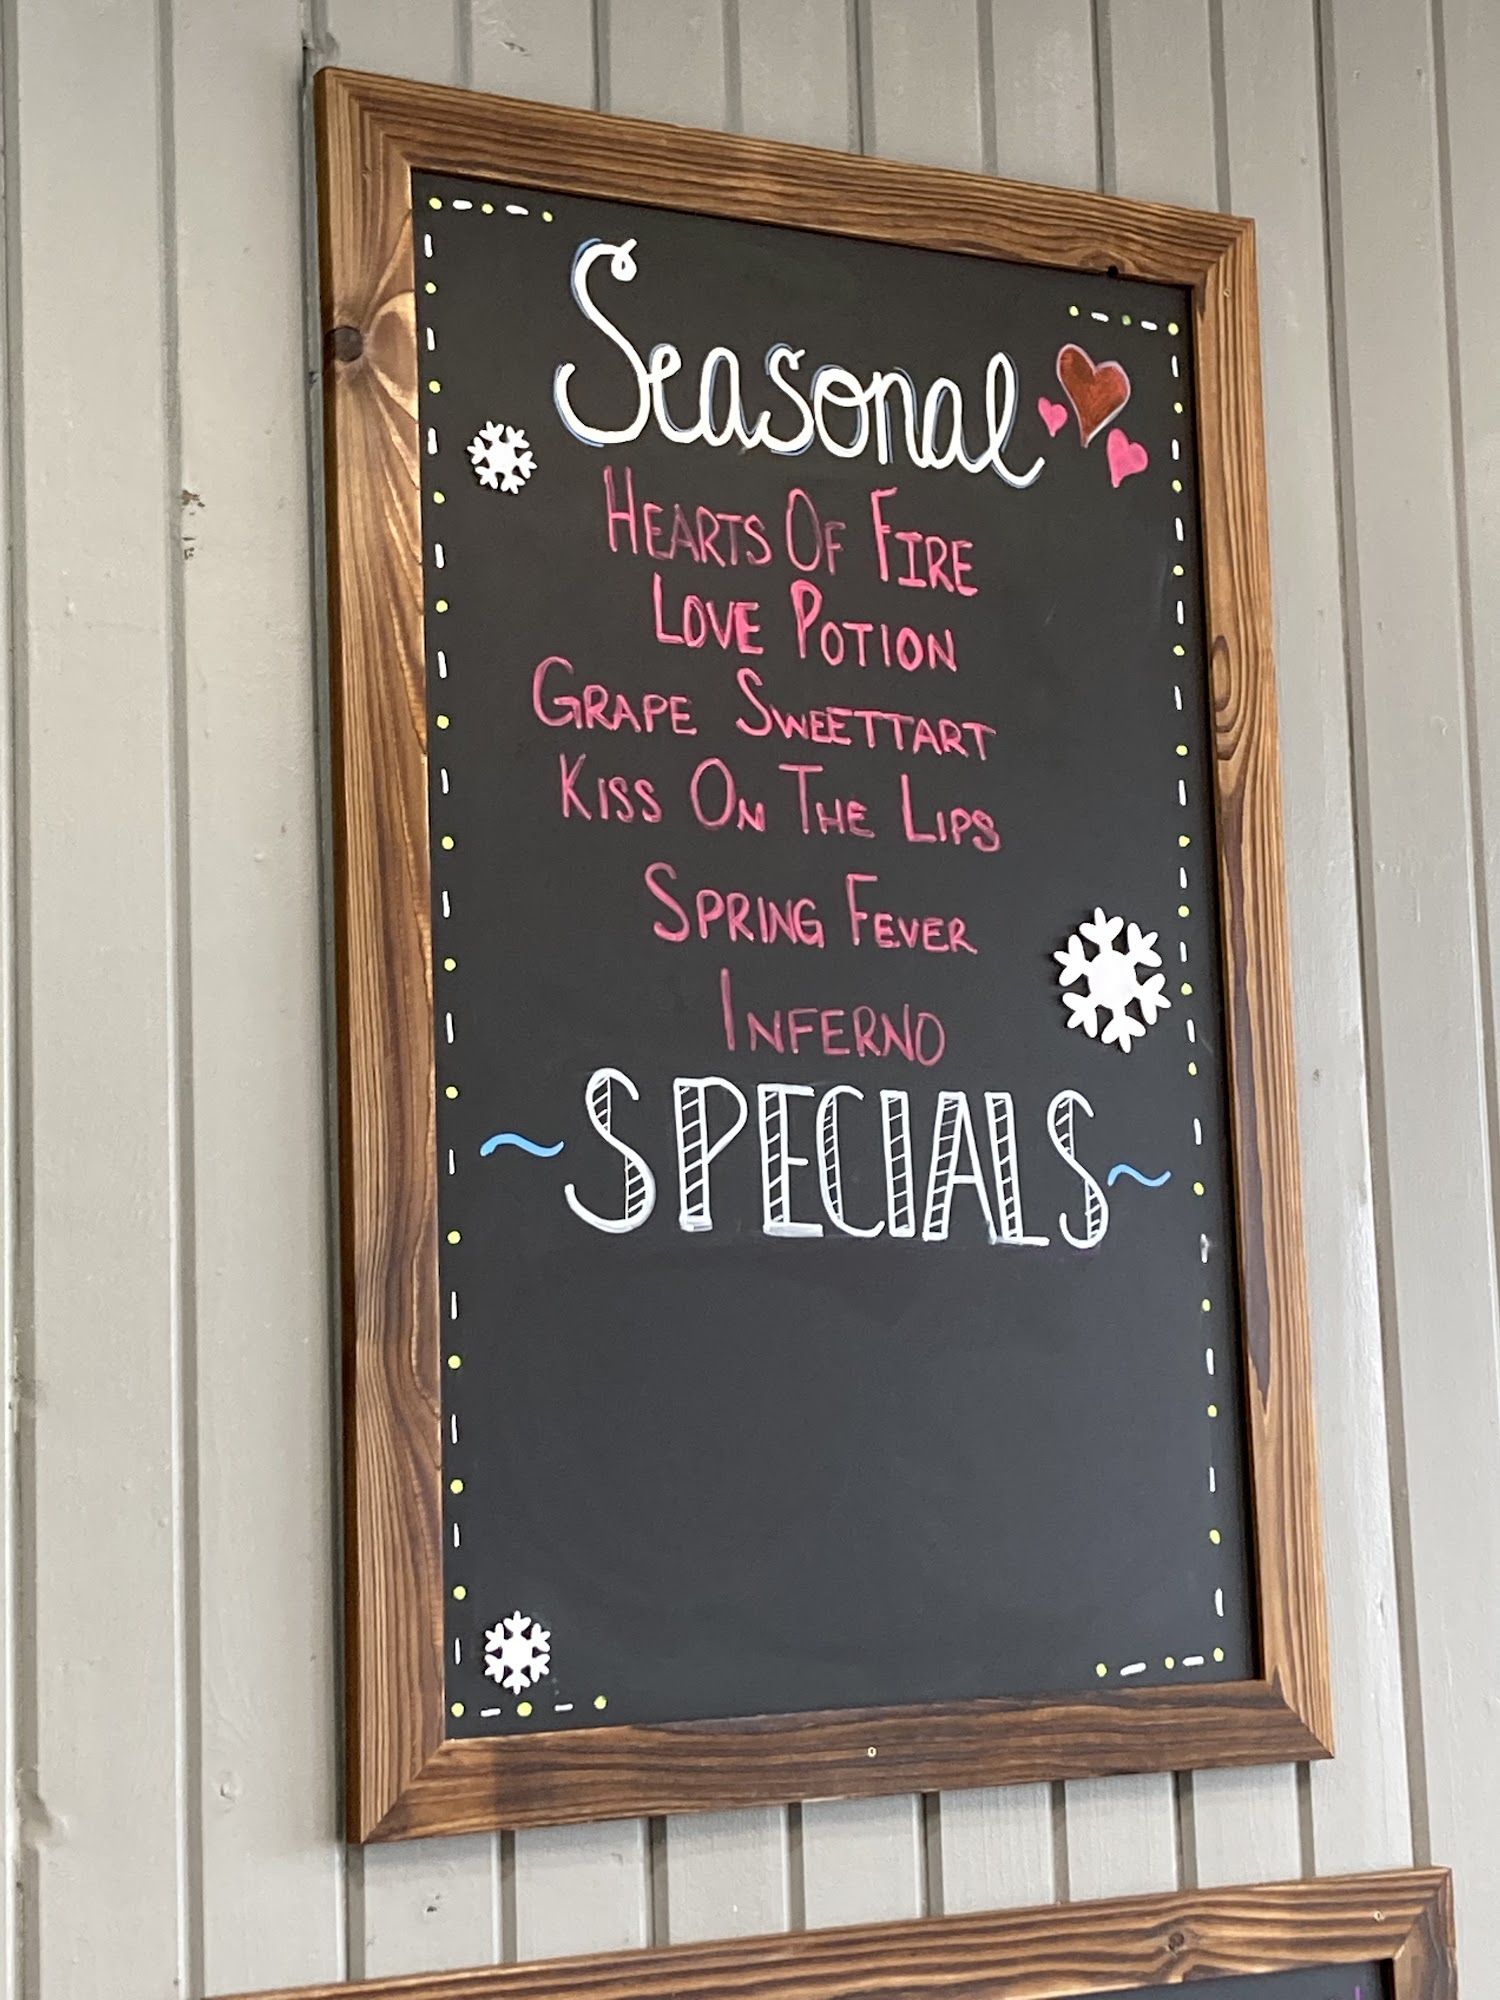 Seasonal
HEARTS OF FIRE
LOVE POTION
GRAPE SWEETTART
KISS ON THE LIPS
SPRING FEVER
INFERNO
~SPECIALS~